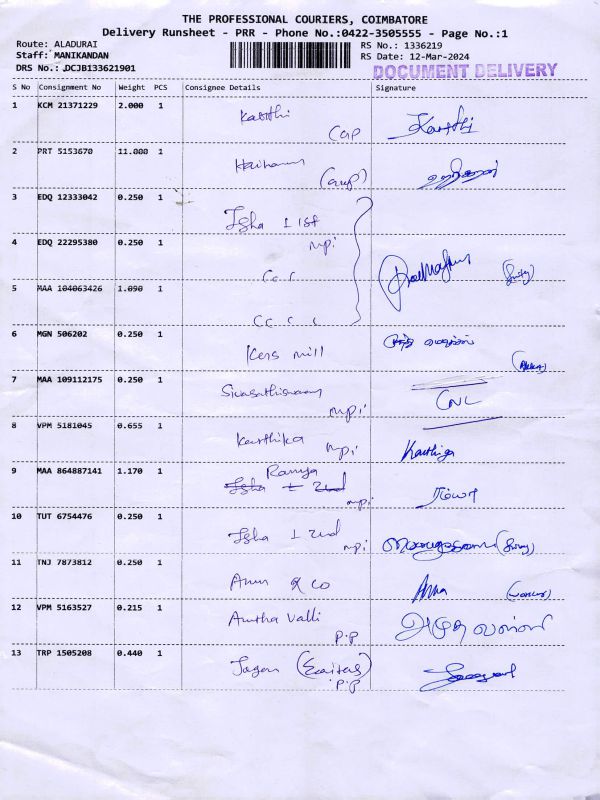 THE PROFESSIONAL COURIERS, COIMBATORE
Delivery Runsheet - PRR - Phone No.:0422-3505555 - Page No.:1
Route: ALADURAI
Staff: MANIKANDAN
DRS No.: DCJB133621901
RS No.: 1336219
RS Date: 12-Mar-2024
DOCUMENT DELIVERY
S No Consignment No Weight PCS Consignee Details Signature
1 KCM 21371229 2.000 1 Karthi Karthi
2 PRT 5153670 11.000 1
3 EDQ 12333042 0.250 1 Isha 1 1st
mpi
4 EDQ 22295380 0.250 1
5 MAA 104063426 1.090 1
6 MGN 506202 0.250 1 mill
7 MAA 109112175 0.250 1 CNL
mpi
8 VPM 5181045 0.655 1 Karthika mpi Karthiga
9 MAA 864887141 1.170 1 Ramya ரம்யா
Isha 1 2nd mpi
10 TUT 6754476 0.250 1 Isha 1 2nd mpi
11 TNJ 7873812 0.250 1 Arun & co
12 VPM 5163527 0.215 1 Amtha valli அமுதவல்லி
p.p
13 TRP 1505208 0.440 1 Jagan
p.p